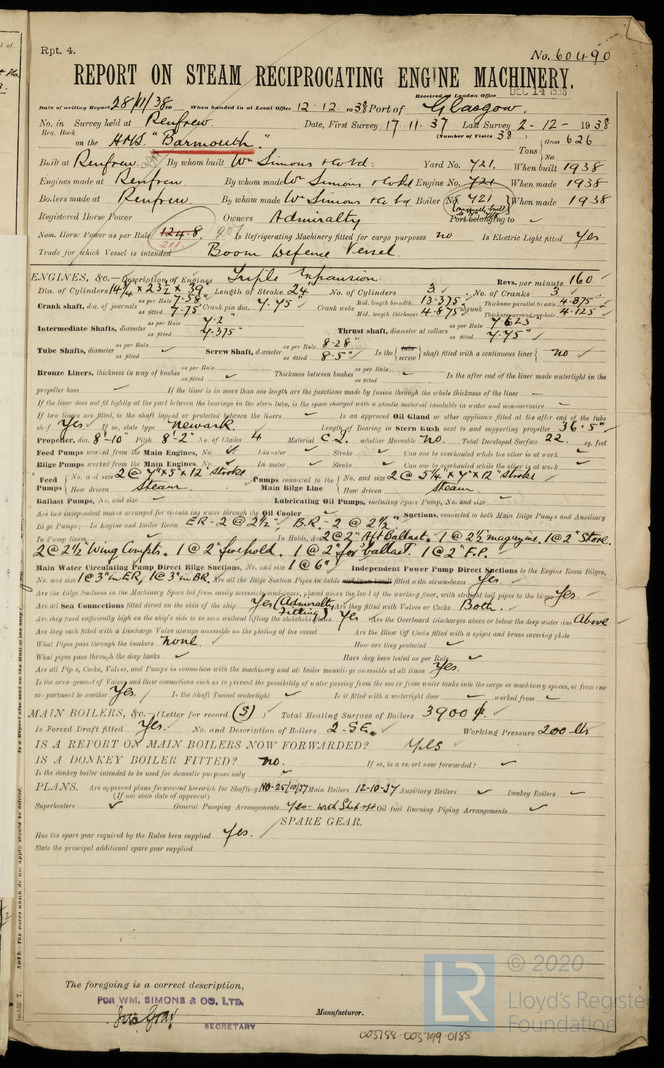 Rpt. 4.
No. 60490
REPORT ON STEAM RECIPROCATING ENGINE MACHINERY.
Received at London Office DEC 14 1938
Date of writing Report 28/11/38 When handed in at Local Office 12.12.1938 Port of Glasgow.
No. in Survey held at Renfrew Date, First Survey 17.11.37 Last Survey 2-12-1938
Reg. Book (Number of Visits 38)
on the HMS "Barmouth" Tons Gross 626 Net
Built at Renfrew. By whom built Wm Simons & Co Ld. Yard No. 721. When built 1938
Engines made at Renfrew By whom made Wm Simons & Co Ld Engine No. 721 When made 1938
Boilers made at Renfrew. By whom made Wm Simons & Co Ld Boiler No. 721 When made 1938
Registered Horse Power Owners Admiralty Port belonging to
Nom. Horse Power as per Rule 124.8 Is Refrigerating Machinery fitted for cargo purposes no Is Electric Light fitted Yes
Trade for which Vessel is intended Boom Defence Vessel.
ENGINES, &c.—Description of Engines Triple Expansion. Revs. per minute 160
Dia. of Cylinders 14¼ x 23½ x 39 Length of Stroke 24" No. of Cylinders 3 No. of Cranks 3
Crank shaft, dia. of journals as per Rule 7.58" as fitted 7.75 Crank pin dia. 7.75" Crank webs Mid. length breadth 13.375" Mid. length thickness 4.875" shrunk Thickness parallel to axis 4.875" Thickness around eyehole 4.125"
Intermediate Shafts, diameter as per Rule 7.2" as fitted 7.375" Thrust shaft, diameter at collars as per Rule 7.625 as fitted 7.75"
Tube Shafts, diameter as per Rule as fitted Screw Shaft, diameter as per Rule 8.28" as fitted 8.5" Is the tube screw shaft fitted with a continuous liner no
Bronze Liners, thickness in way of bushes as per Rule as fitted Thickness between bushes as per Rule as fitted Is the after end of the liner made watertight in the
propeller boss If the liner is in more than one length are the junctions made by fusion through the whole thickness of the liner
If the liner does not fit tightly at the part between the bearings in the stern tube, is the space charged with a plastic material insoluble in water and non-corrosive
If two liners are fitted, is the shaft lapped or protected between the liners Is an approved Oil Gland or other appliance fitted at the after end of the tube
shaft Yes If so, state type Newark. Length of Bearing in Stern Bush next to and supporting propeller 36.5"
Propeller, dia. 8'-10" Pitch 8'-2" No. of Blades 4 Material C.I. whether Moveable No. Total Developed Surface 22 sq. feet
Feed Pumps worked from the Main Engines, No. Diameter Stroke Can one be overhauled while the other is at work
Bilge Pumps worked from the Main Engines, No. Diameter Stroke Can one be overhauled while the other is at work
Feed Pumps No. and size 2 @ 7"x5"x12" stroke How driven Steam Pumps connected to the Main Bilge Line No. and size 2 @ 5¼"x7"x12" Stroke How driven Steam.
Ballast Pumps, No. and size Lubricating Oil Pumps, including Spare Pump, No. and size
Are two independent means arranged for circulating water through the Oil Cooler Suctions, connected to both Main Bilge Pumps and Auxiliary
Bilge Pumps;—In Engine and Boiler Room ER-2 @ 2½". B.R.-2 @ 2½"
In Pump Room In Holds, &c. 2 @ 2" Aft Ballast. 1 @ 2½" magazine. 1 @ 2" Store.
2 @ 2½" Wing Compts. 1 @ 2" forehold. 1 @ 2" for'd ballast. 1 @ 2" F.P.
Main Water Circulating Pump Direct Bilge Suctions, No. and size 1 @ 6" Independent Power Pump Direct Suctions to the Engine Room Bilges,
No. and size 1 @ 3" in ER, 1 @ 3" in BR. Are all the Bilge Suction Pipes in holds fitted with strum-boxes Yes.
Are the Bilge Suctions in the Machinery Space led from easily accessible mud-boxes, placed above the level of the working floor, with straight tail pipes to the bilges Yes.
Are all Sea Connections fitted direct on the skin of the ship Yes (Admiralty Fitting) Are they fitted with Valves or Cocks Both.
Are they fixed sufficiently high on the ship's side to be seen without lifting the stokehold plates Yes Are the Overboard Discharges above or below the deep water line Above
Are they each fitted with a Discharge Valve always accessible on the plating of the vessel Are the Blow Off Cocks fitted with a spigot and brass covering plate
What Pipes pass through the bunkers none. How are they protected
What pipes pass through the deep tanks Have they been tested as per Rule
Are all Pipes, Cocks, Valves, and Pumps in connection with the machinery and all boiler mountings accessible at all times Yes.
Is the arrangement of Valves and their connections such as to prevent the possibility of water passing from the sea or from water tanks into the cargo or machinery spaces, or from one
compartment to another Yes. Is the Shaft Tunnel watertight Is it fitted with a watertight door worked from
MAIN BOILERS, &c.—(Letter for record (S)) Total Heating Surface of Boilers 3900
Is Forced Draft fitted Yes. No. and Description of Boilers 2-SE. Working Pressure 200 lbs
IS A REPORT ON MAIN BOILERS NOW FORWARDED? Yes
IS A DONKEY BOILER FITTED? no. If so, is a report now forwarded?
Is the donkey boiler intended to be used for domestic purposes only
PLANS. Are approved plans forwarded herewith for Shafting NO-25/10/37 Main Boilers 12-10-37 Auxiliary Boilers Donkey Boilers
(If not state date of approval)
Superheaters General Pumping Arrangements Yes- with Ship rpt Oil fuel Burning Piping Arrangements
SPARE GEAR.
Has the spare gear required by the Rules been supplied Yes.
State the principal additional spare gear supplied
The foregoing is a correct description,
FOR WM. SIMONS & CO. LTD.
SECRETARY
Manufacturer.
© 2020
LR
Lloyd's Register
Foundation
003788-003799-0185